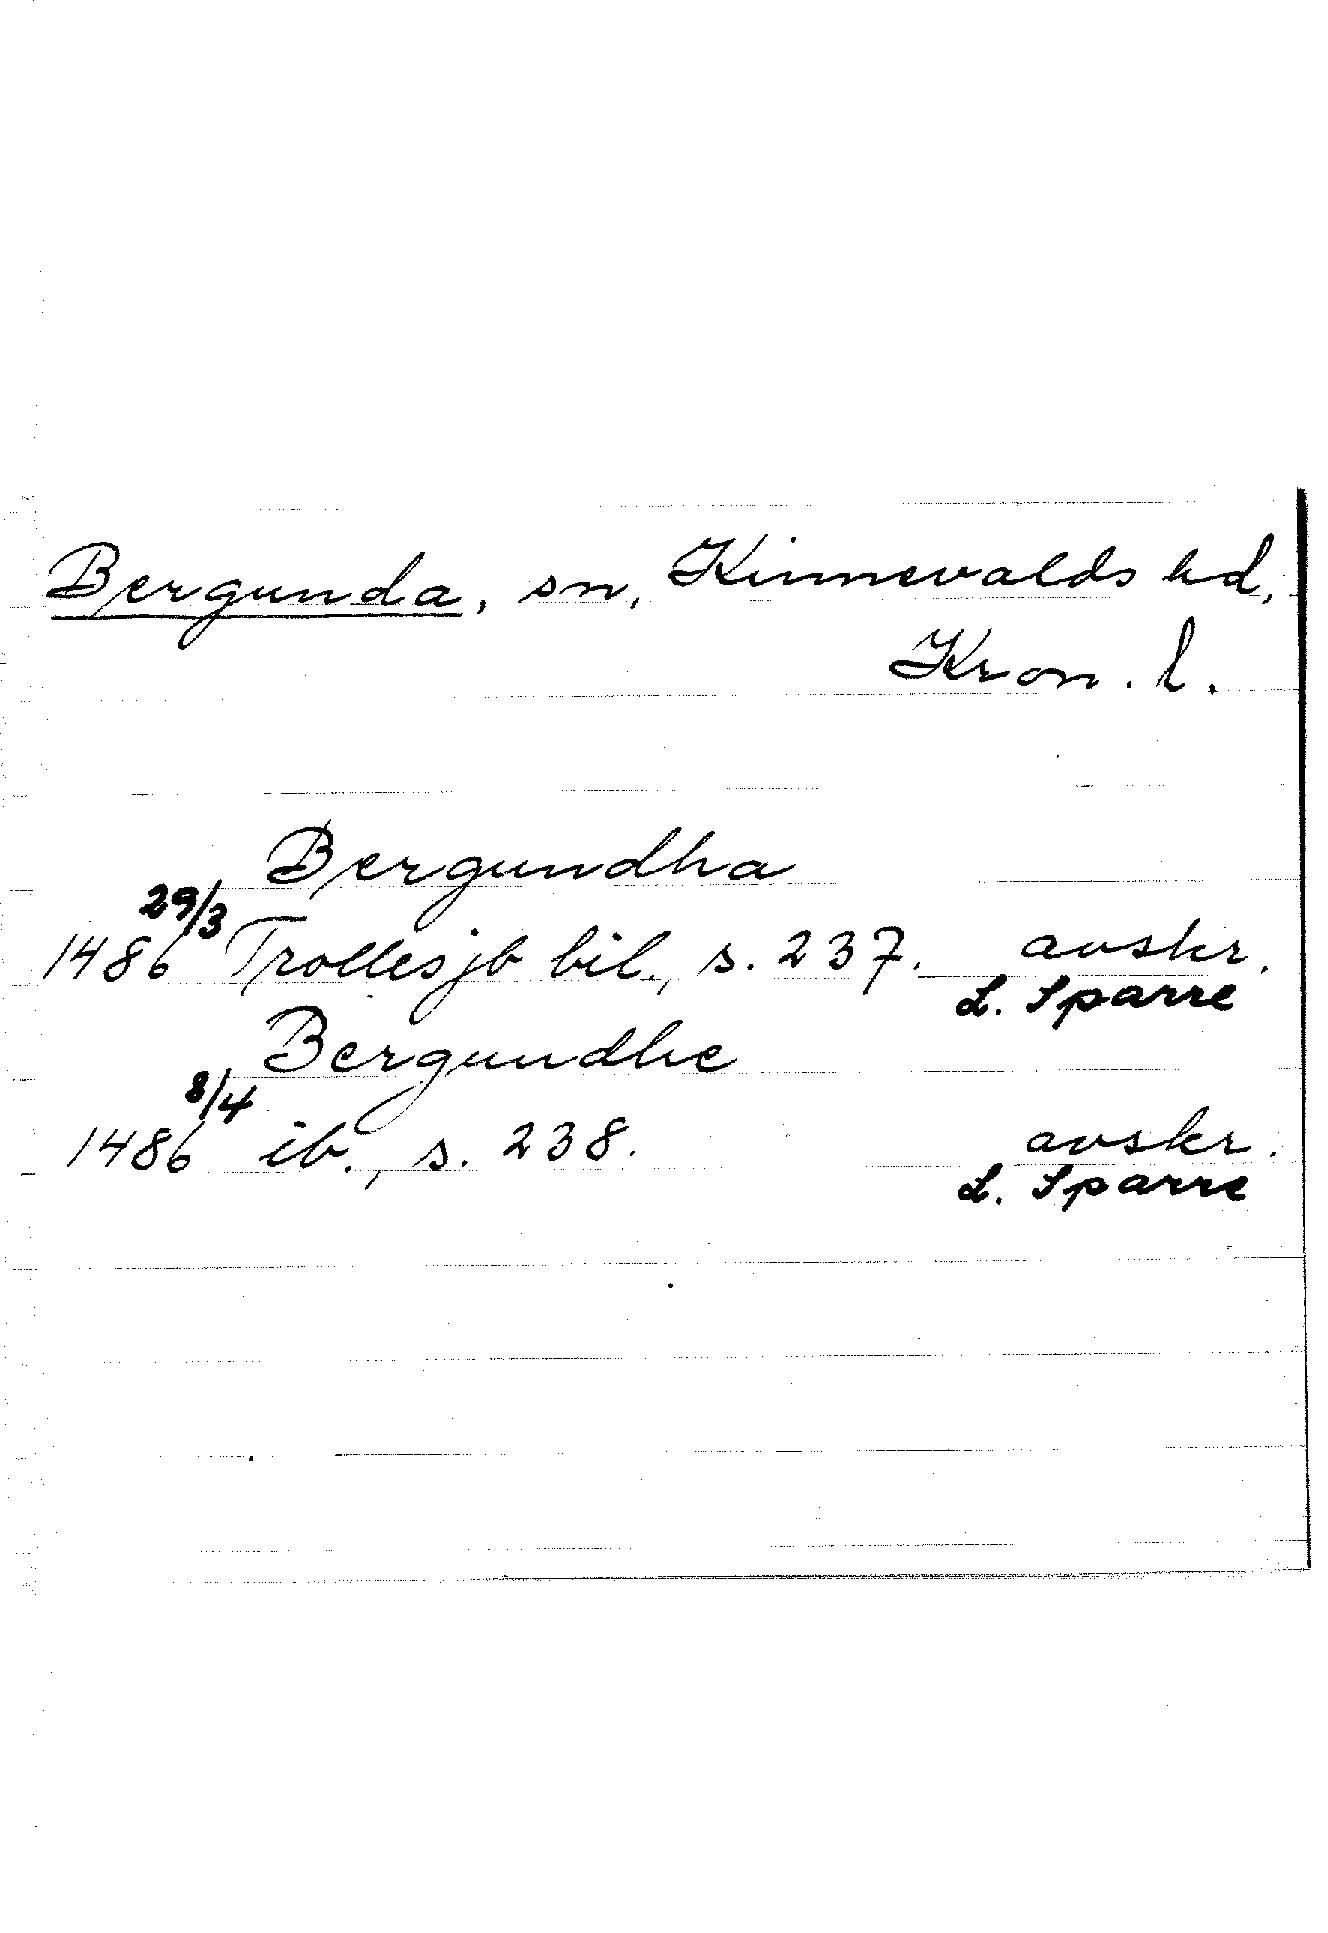 Bergunda, sn, Kinnevalds hd,
Kron. l.
Bergundha
1486 29/3 Trollesjb bil., s. 237. avskr.
L. Sparre
Bergundhe
1486 8/4 ib., s. 238. avskr.
L. Sparre